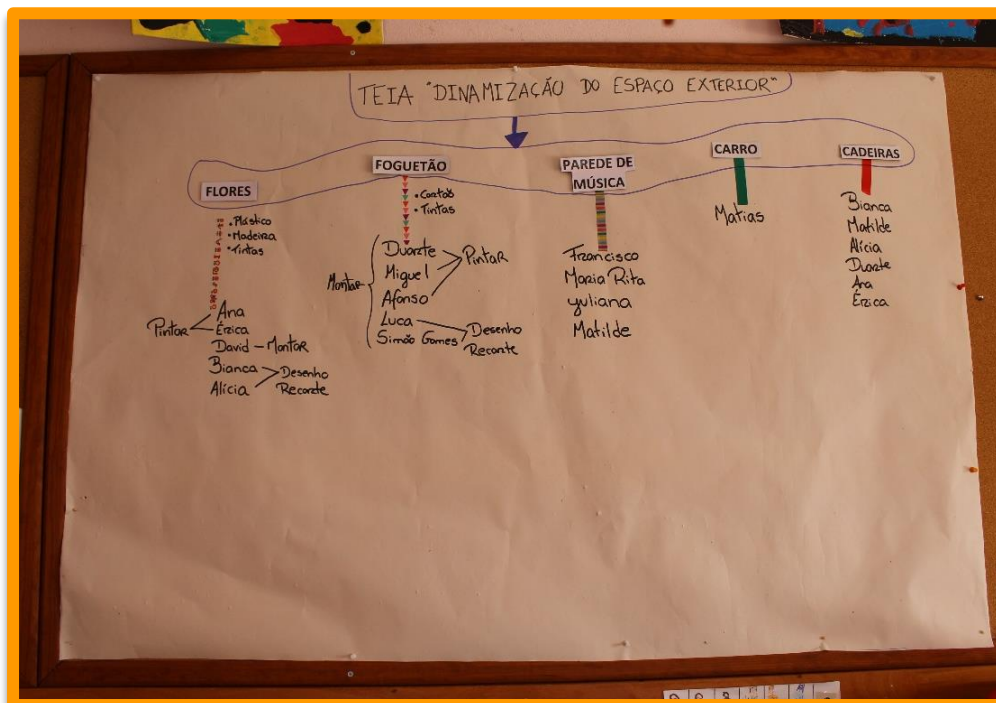 TEIA "DINAMIZAÇÃO DO ESPAÇO EXTERIOR"
FLORES
• Plástico
• Madeira
• Tintas
Pintar
Ana
Érica
David - Montar
Bianca
Alícia
Desenho
Recorte
FOGUETÃO
• Cartão
• Tintas
Montar
Duarte
Miguel
Afonso
Pintar
Luca
Simão Gomes
Desenho
Recorte
PAREDE DE
MÚSICA
Francisco
Maria Rita
yuliana
Matilde
CARRO
Matias
CADEIRAS
Bianca
Matilde
Alícia
Duarte
Ana
Érica